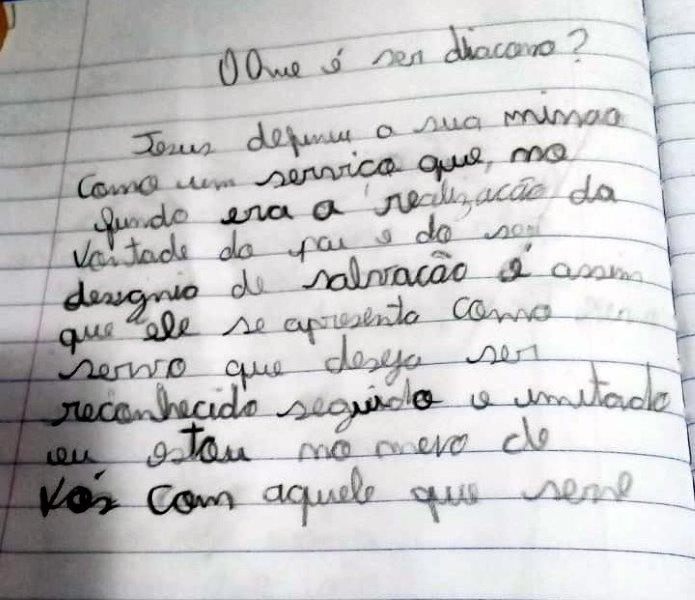 O Que é ser diacono?
Jesus definiu a sua missao
Como um serviço que, no
fundo era a realização da
Vontade do pai e do seu
designio de salvação é assim
que ele se apresenta como
servo que deseja ser
reconhecido seguido e imitado
eu estou no meio de
Vós com aquele que serve